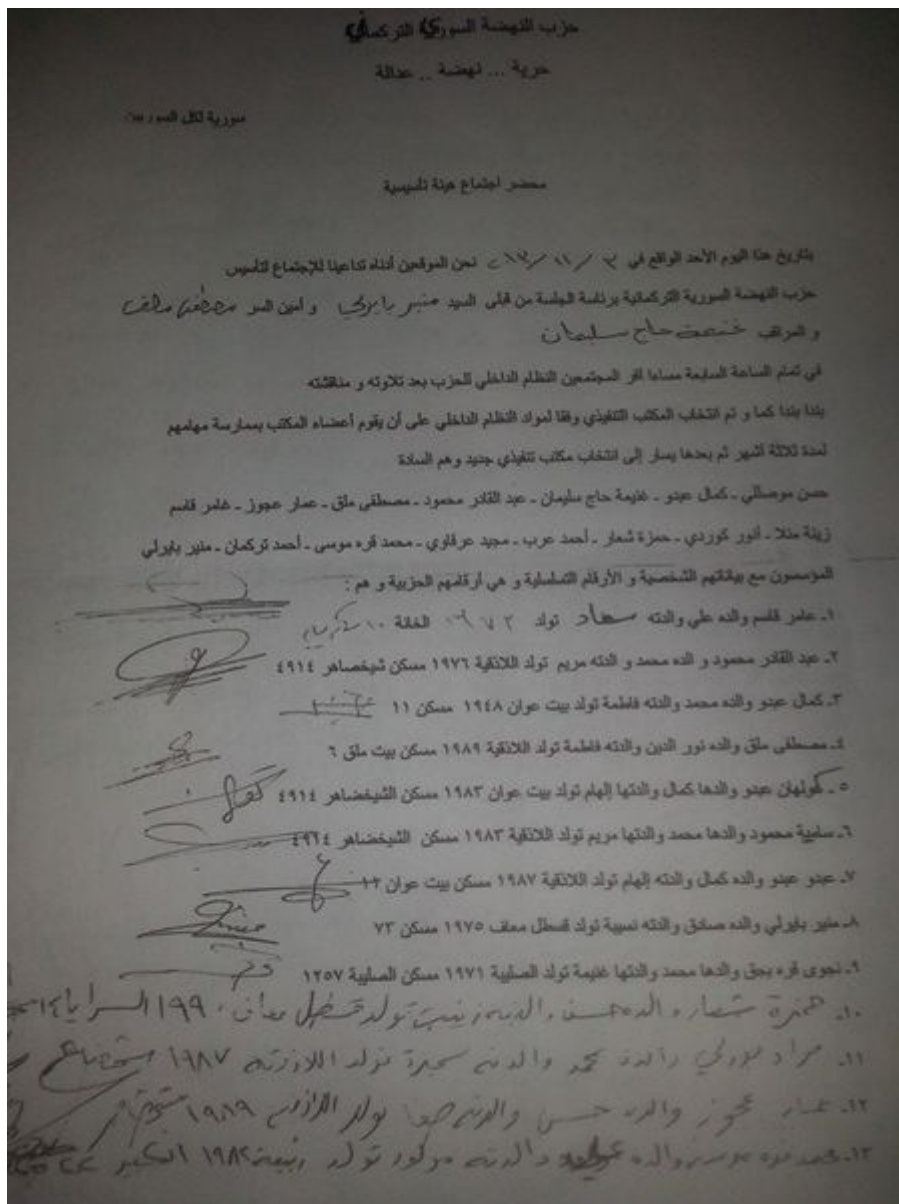 حزب النهضة السوري التركماني
حرية ... نهضة .. عدالة
سورية لكل السوريين
محضر اجتماع هيئة تأسيسية
بتاريخ هذا اليوم الأحد الواقع في ٣ / ١١ / ٢٠١٣ نحن الموقعين أدناه تداعينا للإجتماع لتأسيس
حزب النهضة السورية التركمانية برئاسة الجلسة من قبل السيد منير بايرلي و أمين السر مصطفى ملق
و المراقب غنيمة حاج سليمان
في تمام الساعة السابعة مساءا اقر المجتمعين النظام الداخلي للحزب بعد تلاوته و مناقشته
بندا بندا كما و تم انتخاب المكتب التنفيذي وفقا لمواد النظام الداخلي على أن يقوم أعضاء المكتب بممارسة مهامهم
لمدة ثلاثة أشهر ثم بعدها يسار إلى انتخاب مكتب تنفيذي جديد وهم السادة
حسن موصللي ـ كمال عبدو ـ غنيمة حاج سليمان ـ عبد القادر محمود ـ مصطفى ملق ـ عمار عجوز ـ عامر قاسم
زينة منلا ـ أنور كوردي ـ حمزة شعار ـ أحمد عرب ـ مجيد عرقاوي ـ محمد قره موسى ـ أحمد تركمان ـ منير بايرلي
المؤسسون مع بياناتهم الشخصية و الأرقام التسلسلية و هي أرقامهم الحزبية و هم :
١ـ عامر قاسم والده علي والدته سعاد تولد ١٩٧٢ الخانة ١٠
٢ـ عبد القادر محمود و الده محمد و الدته مريم تولد اللاذقية ١٩٧٦ مسكن شيخصاهر ٤٩١٤
٣ـ كمال عبدو والده محمد والدته فاطمة تولد بيت عوان ١٩٤٨ مسكن ١١
٤ـ مصطفى ملق والده نور الدين والدته فاطمة تولد اللاذقية ١٩٨٩ مسكن بيت ملق ٦
٥ـ كولهان عبدو والدها كمال والدتها إلهام تولد بيت عوان ١٩٨٣ مسكن الشيخضاهر ٤٩١٤
٦ـ سامية محمود والدها محمد والدتها مريم تولد اللاذقية ١٩٨٣ مسكن الشيخضاهر ٤٩٦٤
٧ـ عبدو عبدو والده كمال والدته إلهام تولد اللاذقية ١٩٨٧ مسكن بيت عوان
٨ـ منير بايرلي والده صادق والدته نسيبة تولد قسطل معاف ١٩٧٥ مسكن ٧٣
٩ـ نجوى قره بجق والدها محمد والدتها غنيمة تولد الصليبة ١٩٧١ مسكن الصليبة ١٢٥٧
١٠ـ حمزة شعار والده حسن والدته زينب تولد قسطل معاف ١٩٩٠ السرايا
١١ـ مراد والده محمد والدته تولد اللاذقية ١٩٨٧
١٢ـ عمار عجوز والده حسن والدته صفا تولد اللاذقية ١٩٨٩
١٣ـ محمد قره موسى والده والدته تولد ربيعة ١٩٨٢